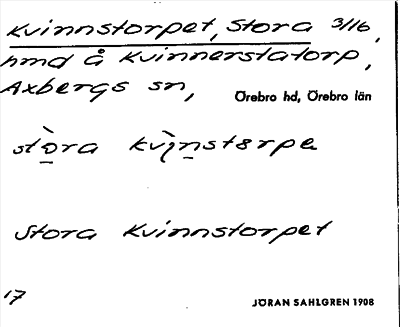 Kvinnstorpet, Stora 3/116,
hmd å Kvinnerstatorp,
Axbergs sn,
Örebro hd, Örebro län
stòra kvìnstɵrpe
Stora Kvinnstorpet
17
JÖRAN SAHLGREN 1908